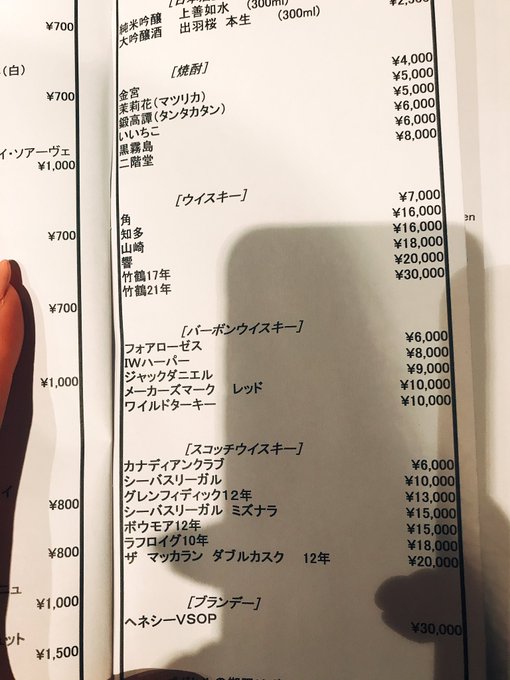 ¥700
(白)
¥700
イ・ソアーヴェ
¥1,000
¥700
¥700
¥1,000
イ
¥800
¥800
ニュ
¥1,000
ット
¥1,500
純米吟醸 上善如水 (300ml)
大吟醸酒 出羽桜 本生 (300ml)
[焼酎]
金宮 ¥4,000
茉莉花(マツリカ) ¥5,000
鍛高譚(タンタカタン) ¥5,000
いいちこ ¥6,000
黒霧島 ¥6,000
二階堂 ¥8,000
[ウイスキー]
角 ¥7,000
知多 ¥16,000
山崎 ¥16,000
響 ¥18,000
竹鶴17年 ¥20,000
竹鶴21年 ¥30,000
[バーボンウイスキー]
フォアローゼス ¥6,000
IWハーパー ¥8,000
ジャックダニエル ¥9,000
メーカーズマーク レッド ¥10,000
ワイルドターキー ¥10,000
[スコッチウイスキー]
カナディアンクラブ ¥6,000
シーバスリーガル ¥10,000
グレンフィディック12年 ¥13,000
シーバスリーガル ミズナラ ¥15,000
ボウモア12年 ¥15,000
ラフロイグ10年 ¥18,000
ザ マッカラン ダブルカスク 12年 ¥20,000
[ブランデー]
ヘネシーVSOP ¥30,000
en